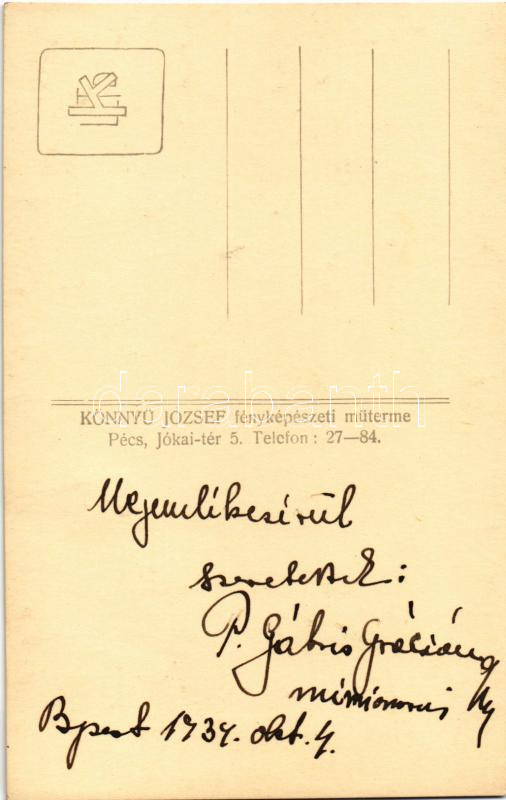 KÖNNYŰ JÓZSEF fényképészeti műterme
Pécs, Jókai-tér 5. Telefon: 27—84.
darabanth
Megemlékezésül
szeretettel:
P. Gábris Gráciáng
Bpest 1934. okt. 4.